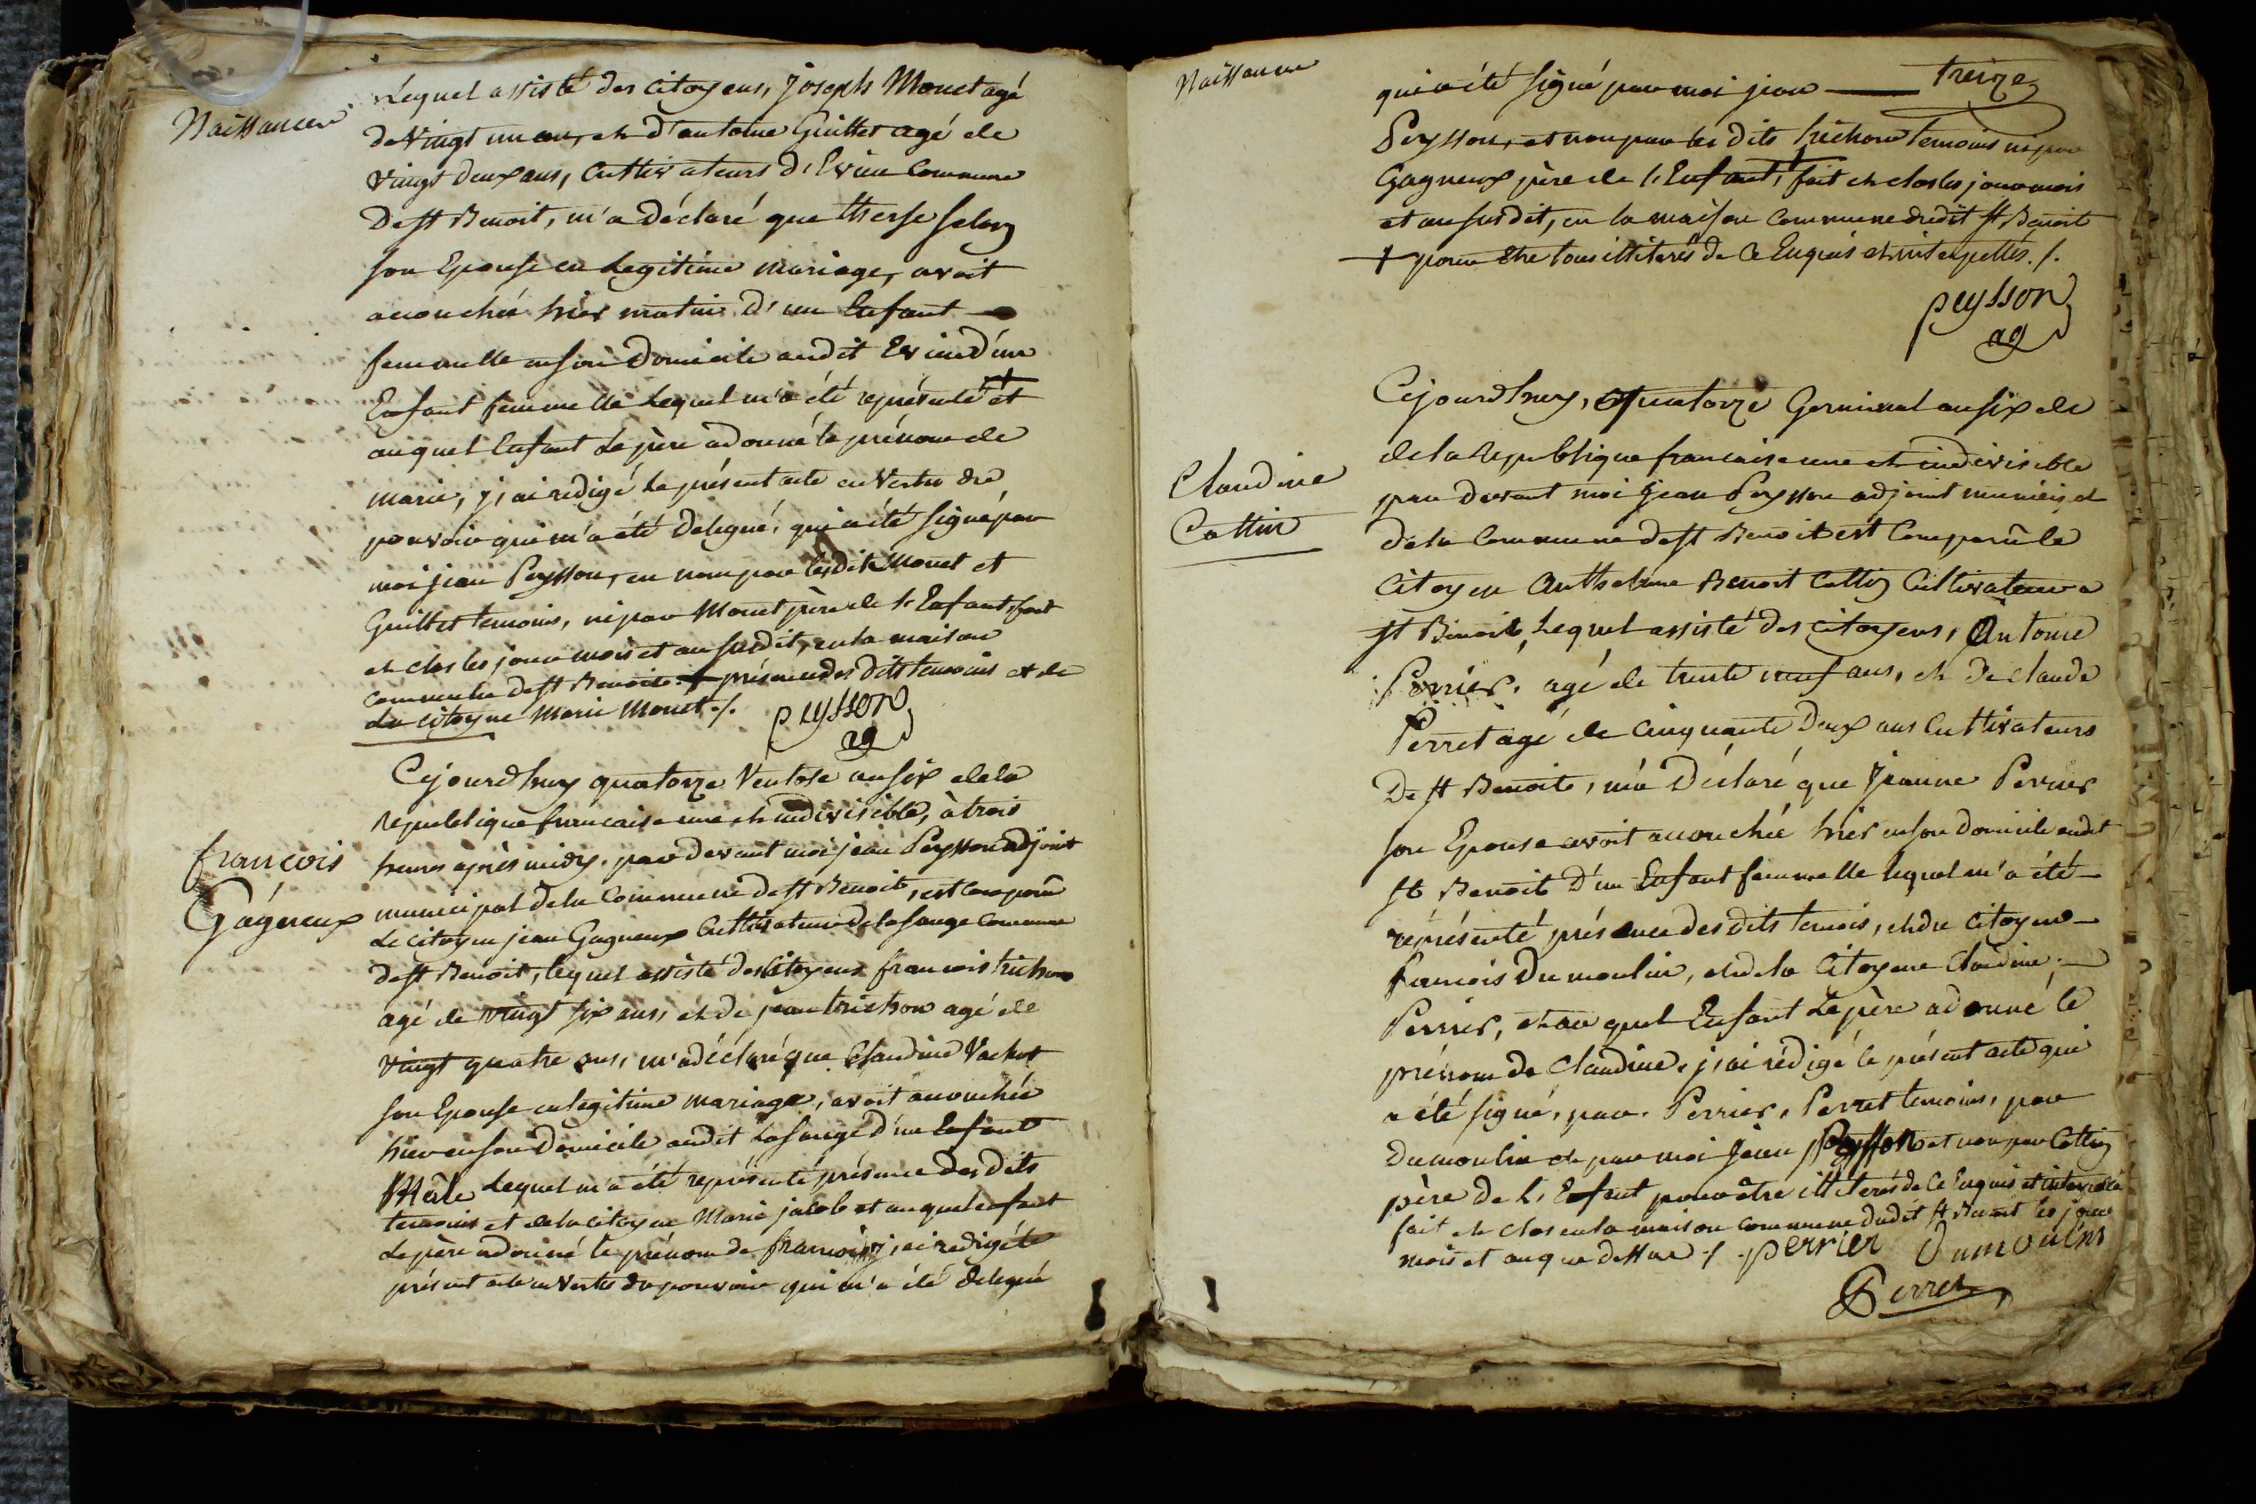 Naissances
Lequel assisté des citoyens, Joseph Monet agé
de vingt un ans, et d'antoine Guillet agé de
vingt deux ans, Cultivateurs d'Evieu Commune
De st Benoit, m'a déclaré que therse Selory
son Epouse en Legitime mariage, avoit
accouchée hièr matin d'un Enfant
femmelle en son Domicile audit Evieu d'un
Enfant femmelle Lequel m'a été représenté + et
auquel Enfant Le père a donné le prénom de
marie, j'ai redigé Le présent acte en Vertu du
pouvoir qui m'a été delegué, qui a été signé par
moi jean Peysson, en non par lesdits Monet et
Guillet temoins, ni par Monet père de L'Enfant, fait
et clos les jour mois et an susdit, en la maison
commune de st Benoit. + présence des dits temoins et de
La citoyene Marie Monet ./.
peysson
ag
françois
Gagneux
Cejourdhuy quatorze Ventose an six de la
Republique francaise une et indivisible, à trois
heures après midy. par devant moi jean Peysson adjoint
municipal de la Commune de st Benoit, est comparu
Le citoyen jean Gagneux Cultivateur de la sauge Commune
de st Benoit, lequel assisté des Citoyens francois trichon
agé de vingt six ans, et de jean trichon agé de
vingt quatre ans, m'a déclaré que Claudine Vachet
son Epouse en legitime mariage, avoit accouchée
hier en son Domicile audit La sauge d'un Enfant
Mâle Lequel m'a été représenté présence des dits
temoins et de la citoyene Marie jacob et auquel enfant
Le père a donné le prénom de francois j'ai redigé le
présent acte en Vertu du pouvoir qui m'a été delegué
Naissances
treize
qui a été signé par moi jean
Peysson, et non par les dits trichon temoins ni par
Gagneux père de l'Enfant, + fait et clos les jour mois
et an susdit, en la maison commune dudit st Benoit
+ pour Etre tous illiterés de ce Enquis et interpellés ./.
peysson
ag
Claudine
Cottin
Cejourdhuy, quatorze Germinal an six de
de la Republique francaise une et indivisible
par devant moi Jean Peysson adjoint municipal
de la Commune de st Benoit est Comparû le
Citoyen Anthelme Benoit Cottin Cultivateur a
st Benoit, Lequel assisté des citoyens, Antoine
Perrier, agé de trente neuf ans, et De claude
Perret agé de Cinquante Deux ans Cultivateurs
De st Benoit, m'a Déclaré que Jeanne Perrier
son Epouse avoit accouchée hier en son domicile audit
st Benoit D'un Enfant femmelle lequel m'a été
représenté présence des dits temois, et du citoyen
francois Dumoulin, et de la Citoyene Claudine
Perrier, et au quel Enfant Le père a donné le
prénom de Claudine. j'ai rédigé le présent acte qui
a été signé, par. Perrier, Perret temoins, par
Dumoulin et par moi Jean Peysson et non par Cottin
père de L'Enfant pour être illiterés de ce Enquis et interpellé
fait et clos en la maison commune dudit st Benoit les jour
mois et an que dessus ./. perrier Dumoulins
Perret